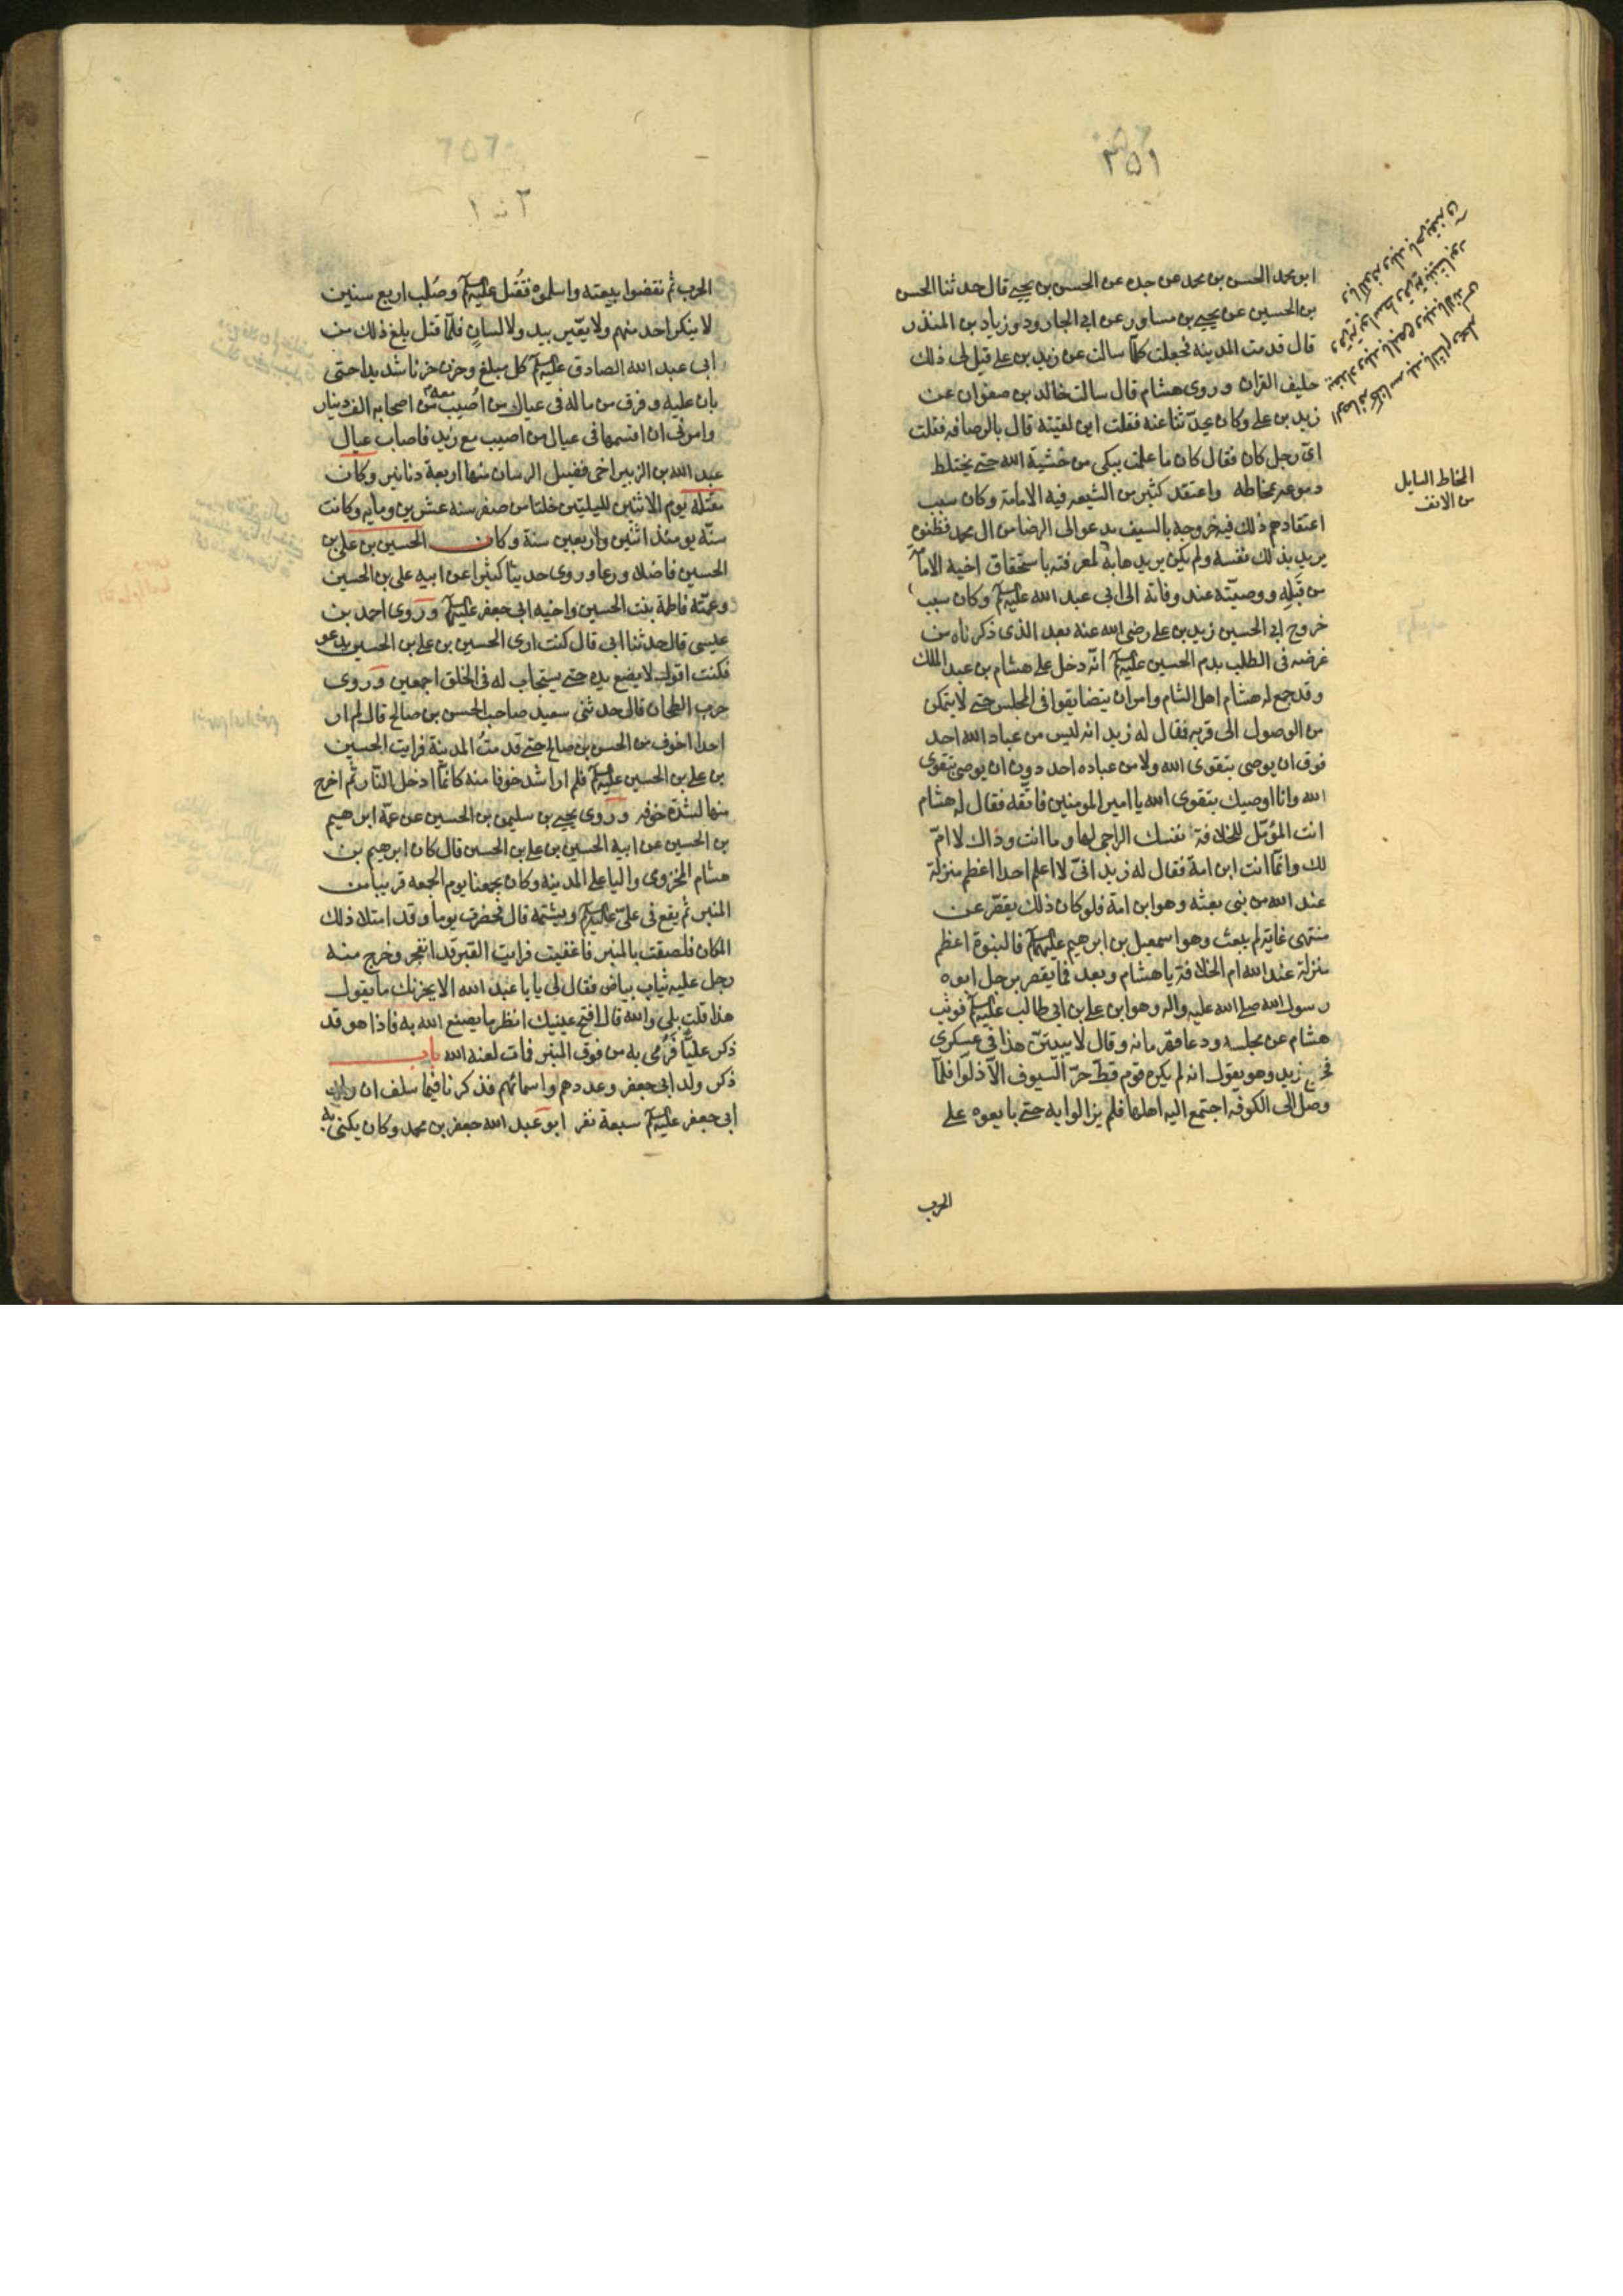 ٢٥١
ابو محمد الحسن بن محمد عن جده عن الحسن بن يحيى قال حدثنا الحسن
بن الحسين عن يحيى بن مساور عن ابى الجارود زياد بن المنذر
قال قدمت المدينة فجعلت كلما سالت عن زيد بن على قيل لى ذلك
حليف القران وروى هشام قال سالت خالد بن صفوان عن
زيد بن على وكان يحدثنا عنه فقلت اين لقيته قال بالرصافه فقلت
اى رجل كان فقال كان ما علمت يبكى من خشية الله حتى يختلط
دموعه بمخاطه واعتقد كثير من الشيعه فيه الامامة وكان سبب
اعتقادهم ذلك فيه خروجه بالسيف يدعو الى الرضا من ال محمد فظنوه
يريد بذلك نفسه ولم يكن يريدها به لمعرفته باستحقاق اخيه الامامة
من قبله ووصيته عند وفاته الى ابى عبد الله عليه السلم وكان سبب
خروج ابى الحسين زيد بن على رضى الله عنه بعد الذى ذكرناه من
غرضه فى الطلب بدم الحسين عليه السلم انه دخل على هشام بن عبد الملك
وقد جمع له هشام اهل الشام وامر ان يتضايقوا فى المجلس حتى لا يتمكن
من الوصول الى قربه فقال له زيد انه ليس من عباد الله احد
فوق ان يوصى بتقوى الله ولا من عباده احد دون ان يوصى بتقوى
الله وانا اوصيك بتقوى الله يا امير المومنين فاتقه فقال له هشام
انت المؤهل للخلافة نفسك الراجى لها وما انت وذاك لا ام
لك وانما انت ابن امة فقال له زيد انى لا اعلم احدا اعظم منزلة
عند الله من نبى بعثه وهو ابن امة فلو كان ذلك يقصر عن
منتهى غاية لم يبعث وهو اسمعيل بن ابرهيم عليهم السلم فالنبوة اعظم
منزلة عند الله ام الخلافة يا هشام وبعد فما يقصر برجل ابوه
رسول الله صلى الله عليه واله وهو ابن على بن ابى طالب عليه السلم فوثب
هشام عن مجلسه ودعا قهرمانه وقال لا يبيتن هذا فى عسكرى
فخرج زيد وهو يقول انه لم يكره قوم قط حر السيوف الا ذلوا فلما
وصل الى الكوفه اجتمع اليه اهلها فلم يزالوا به حتى بايعوه على
الحرب
المخاط السايل
من الانف
الحرب ثم نقضوا بيعته واسلموه فقتل عليه السلم وصلب اربع سنين
لا ينكر احد منهم ولا يغير بيد ولا لسان فلما قتل بلغ ذلك من
ابى عبد الله الصادق عليه السلم كل مبلغ وحزن حزنا شديدا حتى
بان عليه وفرق من ماله فى عيال من اصيب معه من اصحابه الف دينار
وامرنى ان اقسمها فى عيال من اصيب مع زيد فاصاب عيال
عبد الله بن الزبير اخى فضيل الرسان منها اربعة دنانير وكان
مقتله يوم الاثنين لليلتين خلتا من صفر سنه عشرين ومايه وكانت
سنه يومئذ اثنين واربعين سنة وكان الحسين بن على بن
الحسين فاضلا ورعا وروى حديثا كثيرا عن ابيه على بن الحسين
وعمته فاطمة بنت الحسين واخيه ابى جعفر عليه السلم وروى احمد بن
عيسى قال حدثنا ابى قال كنت ارى الحسين بن على بن الحسين يدعو
فكنت اقول لا يضع يده حتى يستجاب له فى الخلق اجمعين وروى
حرب الطحان قال حدثنى سعيد صاحب الحسن بن صالح قال لم ار
احدا اخوف من الحسن بن صالح حتى قدمت المدينة فرايت الحسين
بن على بن الحسين عليه السلم فلم ار اشد خوفا منه كانما ادخل النار ثم اخرج
منها لشدة خوفه وروى يحيى بن سليمن بن الحسين عن عمه ابرهيم
بن الحسين عن ابيه الحسين بن على بن الحسين قال كان ابرهيم بن
هشام المخزومى واليا على المدينه وكان يجمعنا يوم الجمعه قريبا من
المنبر ثم يقع فى على عليه السلم ويشتمه قال فحضرت يوما وقد امتلا ذلك
المكان فلصقت بالمنبر فاغفيت فرايت القبر قد انفجر وخرج منه
رجل عليه ثياب بياض فقال لى يا با عبد الله الا يحزنك ما يقول
هذا قلت بلى والله قال افتح عينيك انظر ما يصنع الله به فاذا هو قد
ذكر عليا فرمى به من فوق المنبر فمات لعنه الله باب
ذكر ولد ابى جعفر وعددهم واسمائهم فذكرنا فيما سلف ان ولد
ابى جعفر عليه السلم سبعة نفر ابو عبد الله جعفر بن محمد وكان يكنى به